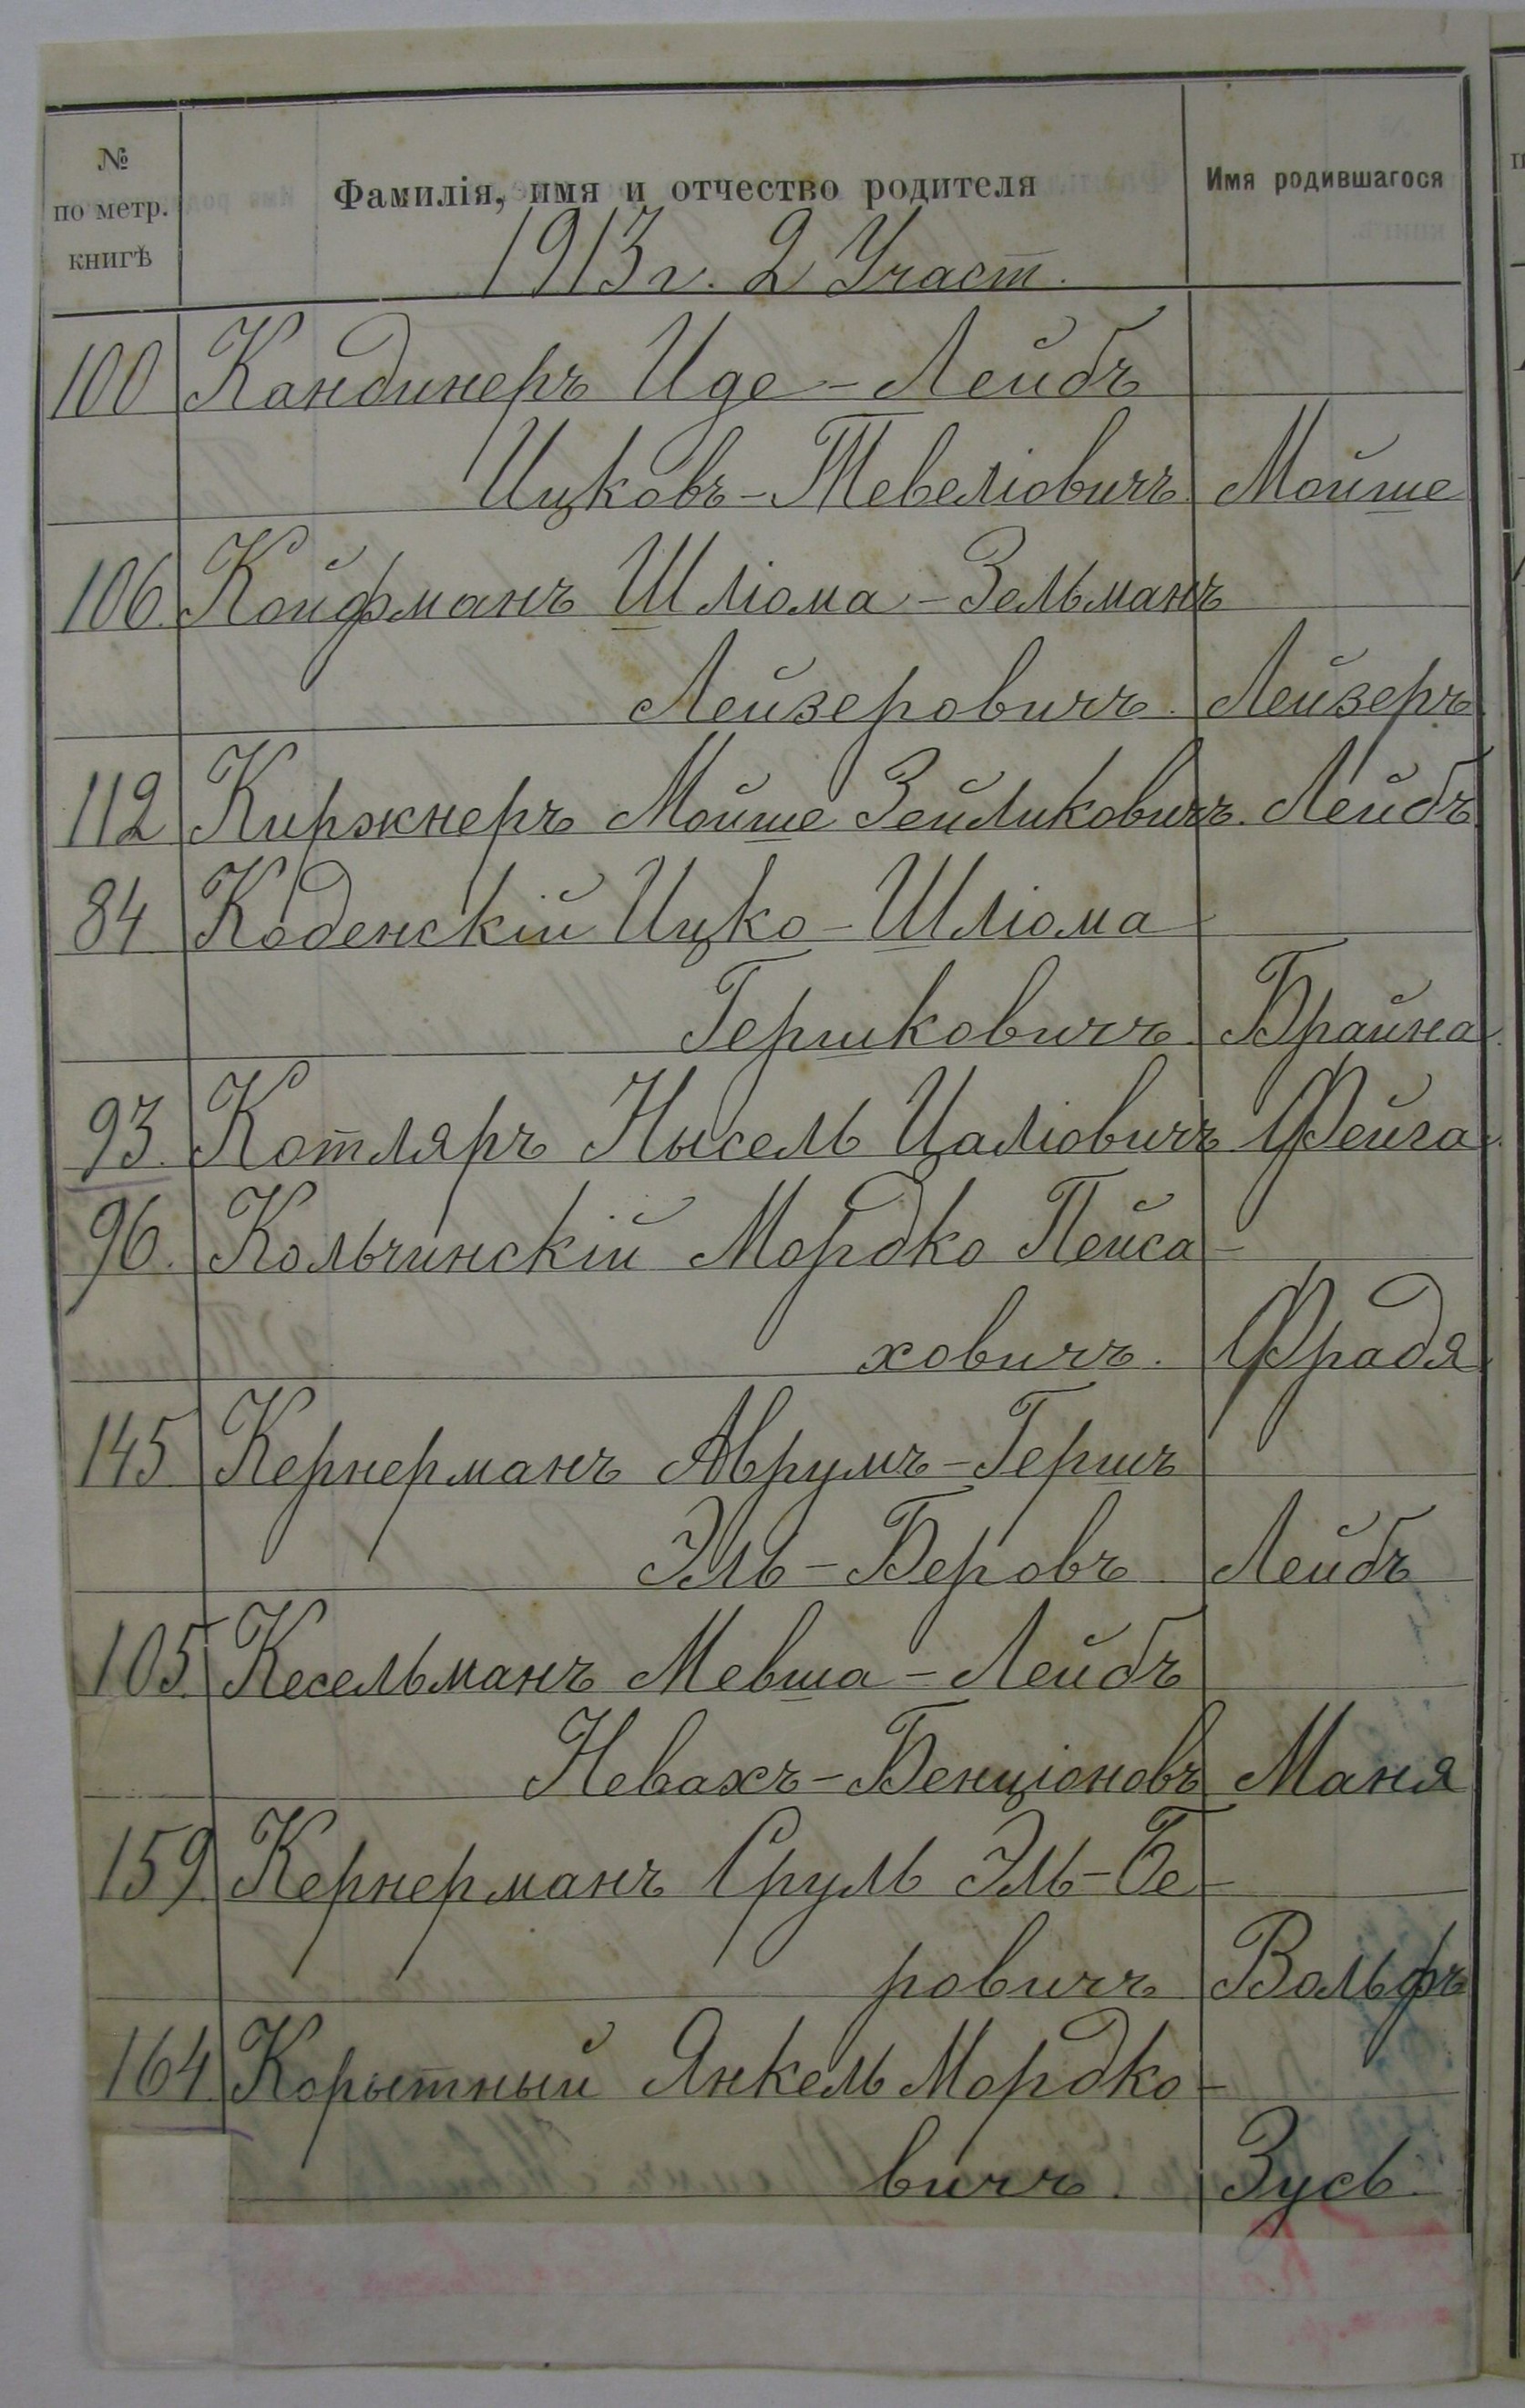 № по метр. книгѣ
Фамилія, имя и отчество родителя
Имя родившагося
1913 г. 2 Участ.
100 Кандинеръ Иде-Лейбъ
Ицковъ-Тевеліовичъ Мойше
106. Койфманъ Шліома-Зельманъ
Лейзеровичъ. Лейзеръ
112 Киржнеръ Мойше Зейликовичъ. Лейбъ
84 Коденскій Ицко-Шліома
Гершковичъ. Брайна
93. Котляръ Нысель Цаліовичъ Фейга.
96. Кольчинскій Мордко Пейса-
ховичъ. Фрадя
145 Кернерманъ Аврумъ-Гершъ
Эль-Беровъ. Лейбъ
105. Кесельманъ Мевша-Лейбъ
Невахъ-Бенціоновъ Маня
159. Кернерманъ Сруль Эль-Бе-
ровичъ Вольфъ
164. Корытный Янкель Мордко-
вичъ. Зусь.